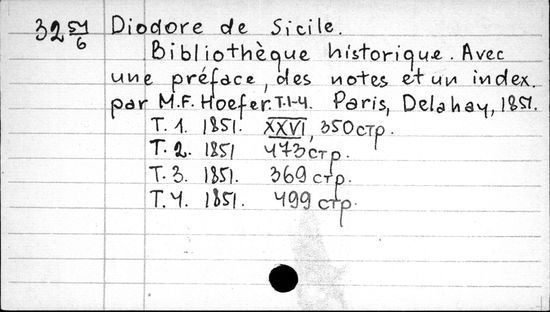 32 51/6 Diodore de Sicile.
Bibliothèque historique. Avec
une préface, des notes et un index.
par M.F. Hoefer. T.1-4. Paris, Delahay, 1851.
T. 1. 1851. XXVI, 350 стр.
T. 2. 1851 473 стр.
T. 3. 1851. 369 стр.
T. 4. 1851. 499 стр.